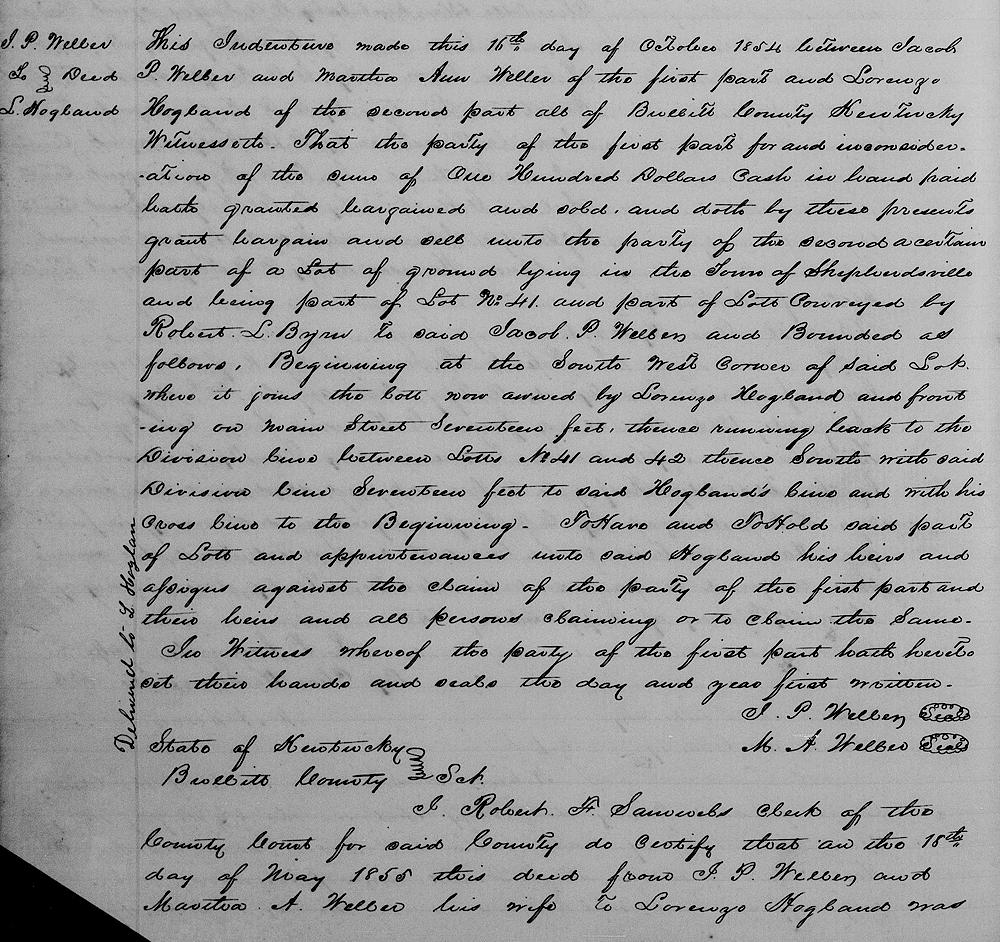 J. P. Weller
To Deed
L. Hogland
This Indenture made this 16th day of October 1854 between Jacob
P. Weller and Martha Ann Weller of the first part and Lorenzo
Hogland of the second part all of Bullitt County Kentucky
Witnesseth. That the party of the first part for and inconsider-
-ation of the sum of One Hundred Dollars Cash in hand paid
hath granted bargained and sold. and doth by these presents
grant bargain and sell unto the party of the second a certain
part of a Lot of ground lying in the Town of Shepherdsville
and being part of Lot No. 41. and part of Lott Conveyed by
Robert. L. Byrn to said Jacob. P. Weller and Bounded as
follows, Beginning at the South West Corner of said Lot.
where it joins the lott now owned by Lorenzo Hogland and front
-ing on main Street Seventeen feet, thence running back to the
Division line between Lotts No 41 and 42 thence South with said
Division line Seventeen feet to said Hogland's line and with his
Cross line to the Beginning. To Have and To Hold said part
of Lott and appurtenances unto said Hogland his heirs and
assigns against the claim of the party of the first part and
their heirs and all persons claiming or to claim the Same.
In Witness whereof the party of the first part hath hereto
set their hands and seals the day and year first written.
J. P. Weller Seal
M. A. Weller Seal
Delivered to L. Hoglan
State of Kentucky
Bullitt County Sct.
I. Robert. F. Samuels Clerk of the
County Court for said County do Certify that on the 18th
day of May 1855 this deed from J. P. Weller and
Martha. A. Weller his wife To Lorenzo Hogland was